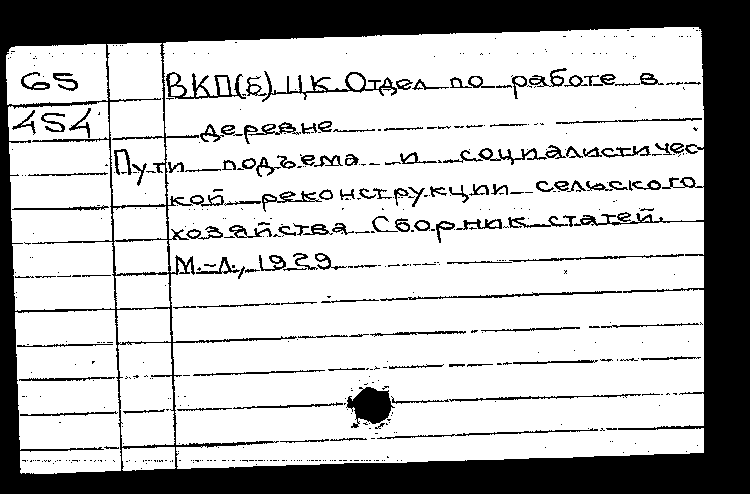 65 ВКП(б). ЦК. Отдел по работе в
454 деревне
Пути подъема и социалистичес-
кой реконструкции сельского
хозяйства Сборник статей.
М.-Л., 1929